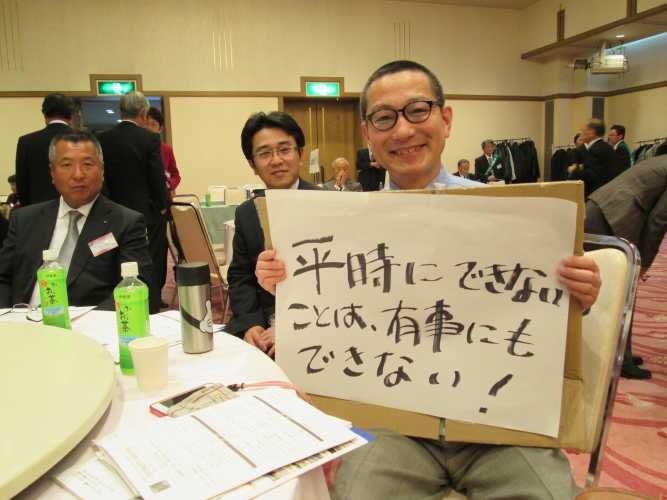 平時にできない
ことは、有事にも
できない!
お〜いお茶